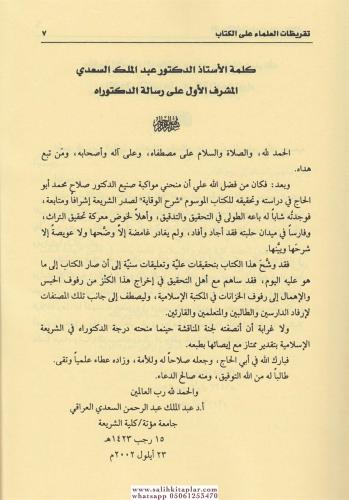 تقريظات العلماء على الكتاب ٧
كلمة الأستاذ الدكتور عبد الملك السعدي
المشرف الأول على رسالة الدكتوراه
الحمد لله، والصلاة والسلام على مصطفاه، وعلى آله وأصحابه، ومَن تبع
هداه.
وبعد: فكان من فضل الله علي أن منحني مواكبة صنيع الدكتور صلاح محمد أبو
الحاج في دراسته وتحقيقه للكتاب الموسوم «شرح الوقاية» لصدر الشريعة إشرافاً ومتابعة،
فوجدتُه شاباً له باعه الطولى في التحقيق والتدقيق، وأهلاً لخوض معركة تحقيق التراث،
وفارساً في ميدان حلبته فقد أجاد وأفاد، ولم يغادر غامضة إلاّ وضَّحها ولا عويصةً إلا
شرحَها وبيَّنها.
فقد وشَّحَ هذا الكتاب بتحقيقات عليَّة وتعليقات سنيَّة إلى أن صار الكتاب إلى ما
هو عليه اليوم، فقد ساهم مع أهل التحقيق في إخراج هذا الكنْز من رفوف الحبس
والإهمال إلى رفوف الخزانات في المكتبة الإسلامية، وليصطف إلى جانب تلك المصنفات
لإرفاد الدارسين والطالبين والمتعلمين والقارئين.
ولا غرابة أن أنصفته لجنة المناقشة حينما منحته درجة الدكتوراه في الشريعة
الإسلامية بتقدير ممتاز مع إيصائها بطبعه.
فبارك الله في أبي الحاج، وجعله صلاحاً له وللأمة، وزاده عطاء علمياً وتقى.
طالباً له من الله التوفيق، ومنه صالح الدعاء.
والحمد لله رب العالمين
أ.د عبد الملك عبد الرحمن السعدي العراقي
جامعة مؤتة/كلية الشريعة
١٥ رجب ١٤٢٣هـ
٢٣ أيلول ٢٠٠٢م
www.salihkitaplar.com
whatsapp 05061255470